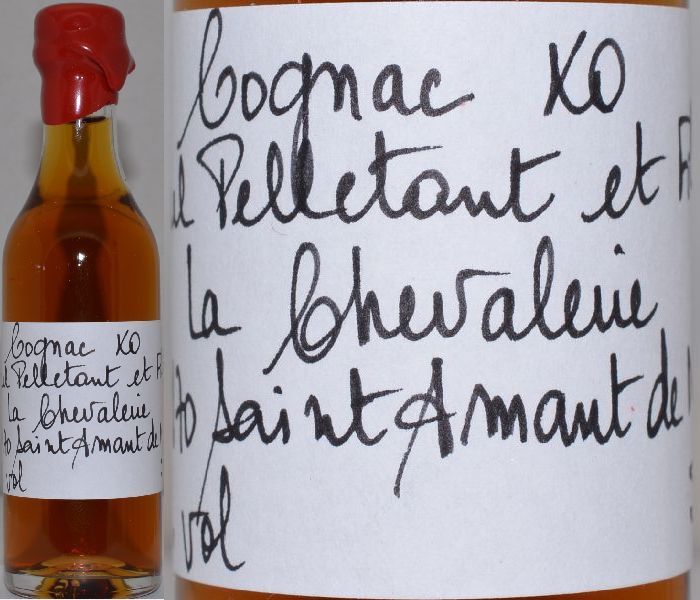 Cognac XO
Pelletant et
la Chevalerie
Saint Amant de
vol
Cognac XO
Pelletant et
la Chevalerie
Saint Amant de
vol